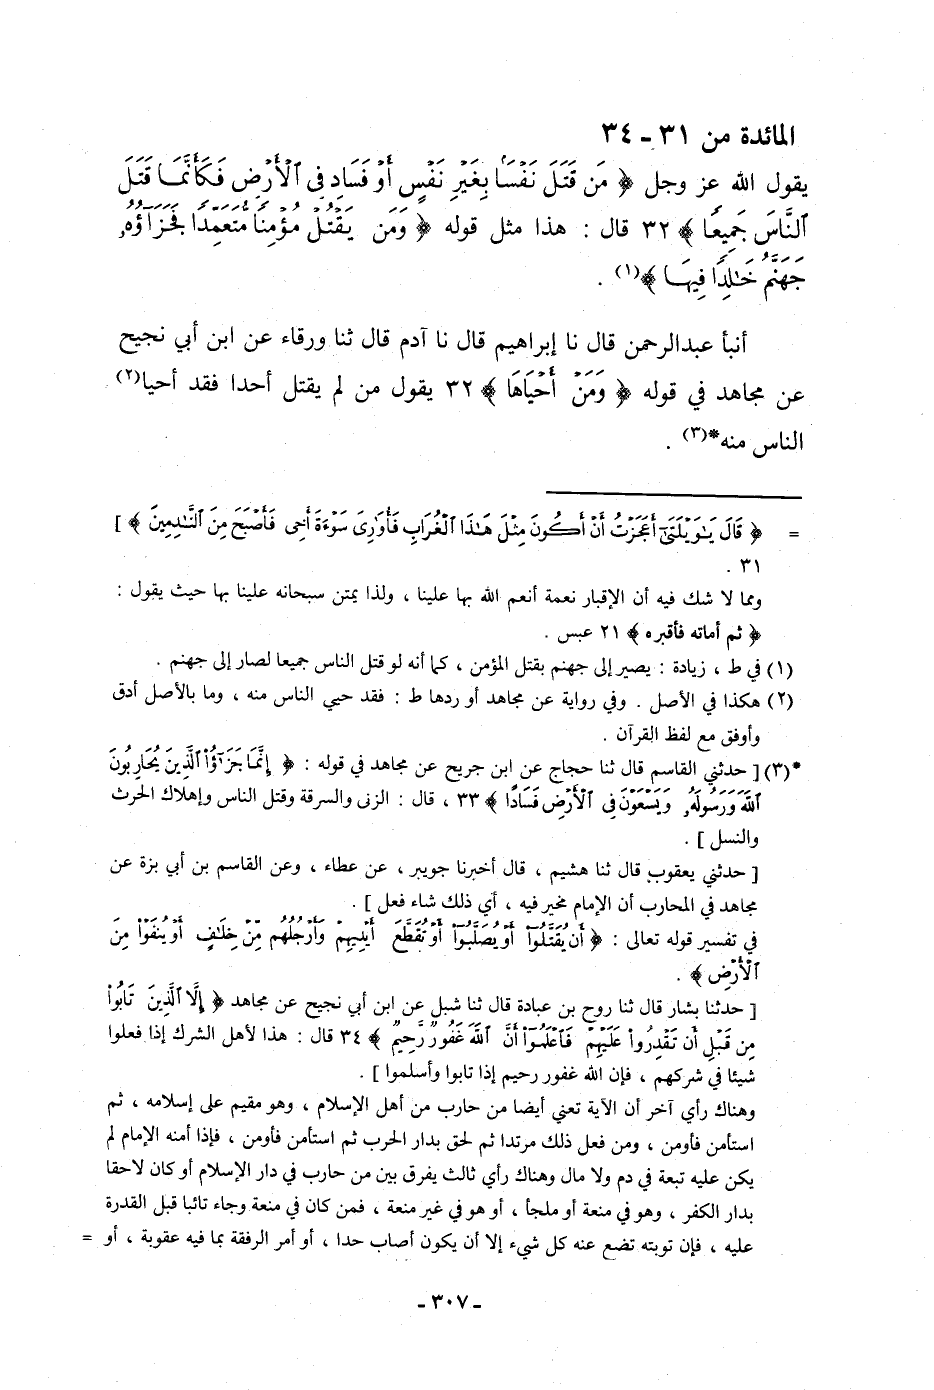 المائدة من ٣١ - ٣٤
يقول الله عز وجل ﴿ مَن قَتَلَ نَفْسًا بِغَيْرِ نَفْسٍ أَوْ فَسَادٍ فِى ٱلْأَرْضِ فَكَأَنَّمَا قَتَلَ
ٱلنَّاسَ جَمِيعًا ﴾ ٣٢ قال : هذا مثل قوله ﴿ وَمَن يَقْتُلْ مُؤْمِنًا مُّتَعَمِّدًا فَجَزَآؤُهُۥ
جَهَنَّمُ خَٰلِدًا فِيهَا ﴾(١) .
أنبأ عبدالرحمن قال نا إبراهيم قال نا آدم قال ثنا ورقاء عن ابن أبي نجيح
عن مجاهد في قوله ﴿ وَمَنْ أَحْيَاهَا ﴾ ٣٢ يقول من لم يقتل أحدا فقد أحيا(٢)
الناس منه*(٣) .
= ﴿ قَالَ يَٰوَيْلَتَىٰٓ أَعَجَزْتُ أَنْ أَكُونَ مِثْلَ هَٰذَا ٱلْغُرَابِ فَأُوَٰرِىَ سَوْءَةَ أَخِى فَأَصْبَحَ مِنَ ٱلنَّٰدِمِينَ ﴾ ]
٣١ .
ومما لا شك فيه أن الإقبار نعمة أنعم الله بها علينا ، ولذا يمتن سبحانه علينا بها حيث يقول :
﴿ ثم أماته فأقبره ﴾ ٢١ عبس .
(١) في ط ، زيادة : يصير إلى جهنم بقتل المؤمن ، كما أنه لو قتل الناس جميعا لصار إلى جهنم .
(٢) هكذا في الأصل . وفي رواية عن مجاهد أو ردها ط : فقد حيي الناس منه ، وما بالأصل أدق
وأوفق مع لفظ القرآن .
*(٣) [ حدثني القاسم قال ثنا حجاج عن ابن جريج عن مجاهد في قوله : ﴿ إِنَّمَا جَزَٰٓؤُا۟ ٱلَّذِينَ يُحَارِبُونَ
ٱللَّهَ وَرَسُولَهُۥ وَيَسْعَوْنَ فِى ٱلْأَرْضِ فَسَادًا ﴾ ٣٣ ، قال : الزنى والسرقة وقتل الناس وإهلاك الحرث
والنسل ] .
[ حدثني يعقوب قال ثنا هشيم ، قال أخبرنا جويبر ، عن عطاء ، وعن القاسم بن أبي بزة عن
مجاهد في المحارب أن الإمام مخير فيه ، أي ذلك شاء فعل ] .
في تفسير قوله تعالى : ﴿ أَن يُقَتَّلُوٓا۟ أَوْ يُصَلَّبُوٓا۟ أَوْ تُقَطَّعَ أَيْدِيهِمْ وَأَرْجُلُهُم مِّنْ خِلَٰفٍ أَوْ يُنفَوْا۟ مِنَ
ٱلْأَرْضِ ﴾ .
[ حدثنا بشار قال ثنا روح بن عبادة قال ثنا شبل عن ابن أبي نجيح عن مجاهد ﴿ إِلَّا ٱلَّذِينَ تَابُوا۟
مِن قَبْلِ أَن تَقْدِرُوا۟ عَلَيْهِمْ فَٱعْلَمُوٓا۟ أَنَّ ٱللَّهَ غَفُورٌ رَّحِيمٌ ﴾ ٣٤ قال : هذا لأهل الشرك إذا فعلوا
شيئا في شركهم ، فإن الله غفور رحيم إذا تابوا وأسلموا ] .
وهناك رأي آخر أن الآية تعني أيضا من حارب من أهل الإسلام ، وهو مقيم على إسلامه ، ثم
استأمن فأومن ، ومن فعل ذلك مرتدا ثم لحق بدار الحرب ثم استأمن فأومن ، فإذا أمنه الإمام لم
يكن عليه تبعة في دم ولا مال وهناك رأي ثالث يفرق بين من حارب في دار الإسلام أو كان لاحقا
بدار الكفر ، وهو في منعة أو ملجأ ، أو هو في غير منعة ، فمن كان في منعة وجاء تائبا قبل القدرة
عليه ، فإن توبته تضع عنه كل شيء إلا أن يكون أصاب حدا ، أو أمر الرفقة بما فيه عقوبة ، أو =
- ٣٠٧ -